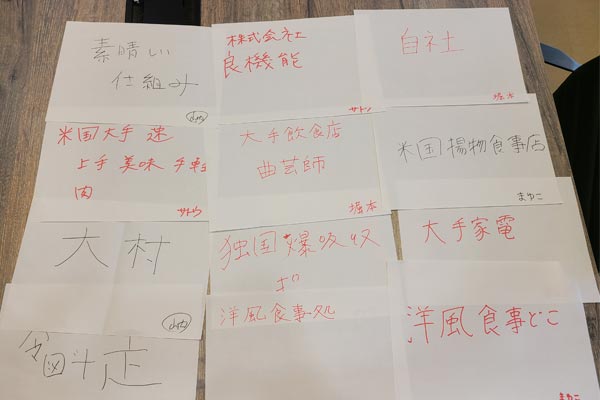 素晴しい
仕組み
山内
株式会社
良機能
サトウ
自社
堀本
米国大手 速
上手 美味 手軽
肉
サトウ
大手飲食店
曲芸師
堀本
米国揚物食事店
まゆこ
大村
山内
独国爆吸収
大手家電
洋風食事処
洋風食事どこ
まゆこ
走